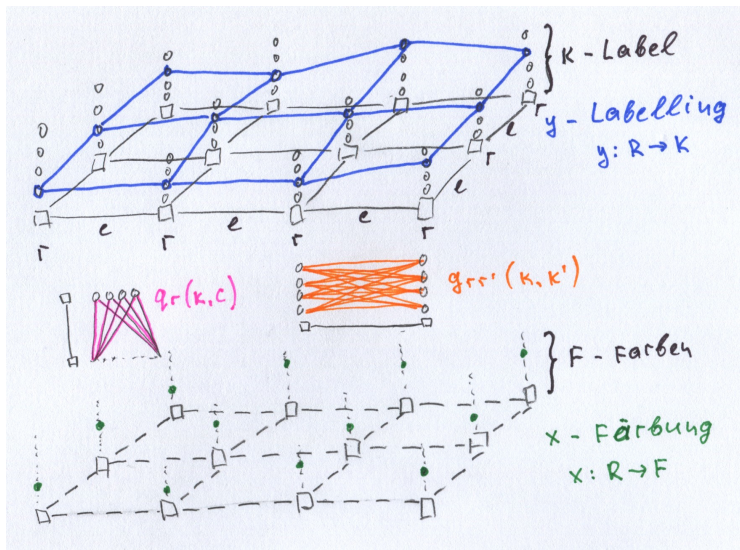 K - Label
y - Labelling
y: R → K
r
e
r
e
r
r
e
r
e
r
e
r
qr(k,c)
grr'(k,k')
F - Farben
x - Färbung
x: R → F